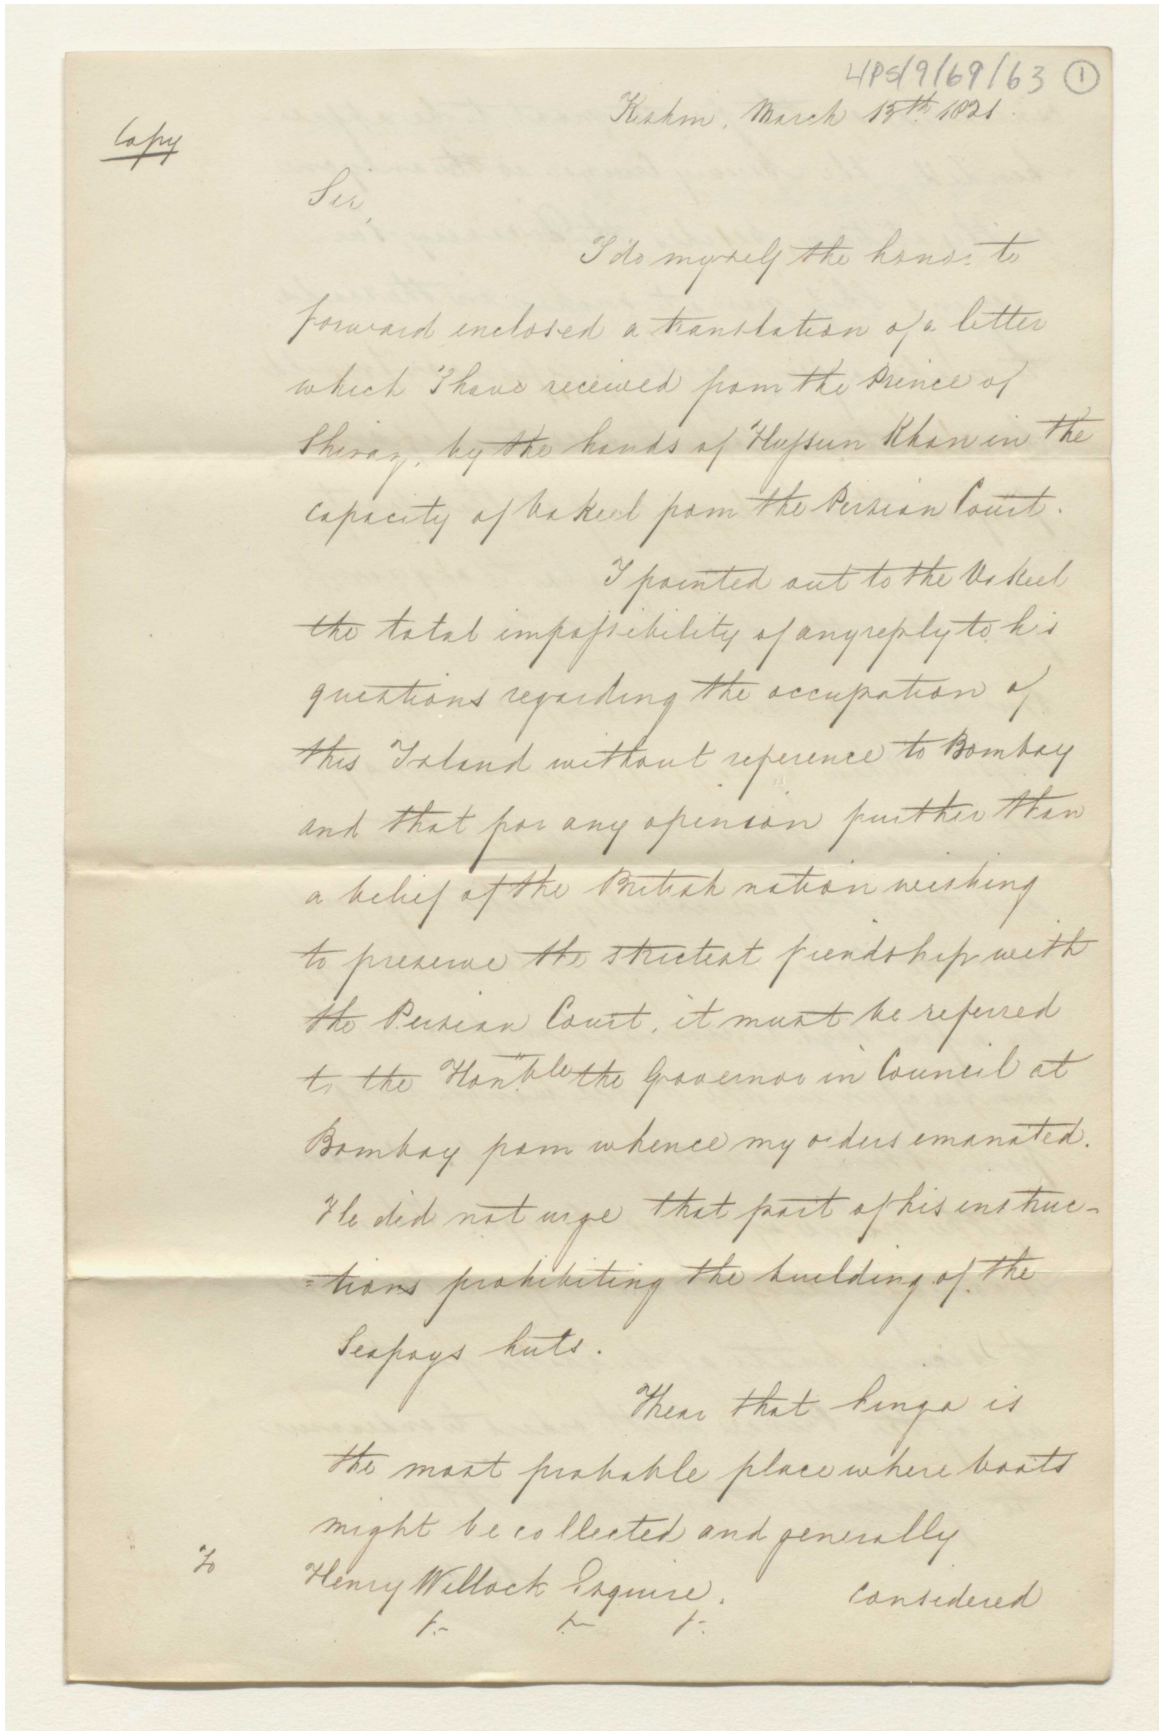 L/PS/9/69/63 1
Kishm, March 13th 1821.
Copy
Sir,
I do myself the honor to
forward enclosed a translation of a letter
which I have received from the Prince of
Shiraz, by the hands of Hussun Khan in the
capacity of Vakeel from the Persian Court.
I pointed out to the Vakeel
the total impossibility of any reply to his
questions regarding the occupation of
this Island without reference to Bombay
and that for any opinion further than
a belief of the British nation wishing
to preserve the strictest friendship with
the Persian Court, it must be referred
to the Hon'ble the Governor in Council at
Bombay from whence my orders emanated.
He did not urge that part of his instruc-
=tions prohibiting the building of the
Seapoys huts.
I hear that Linga is
the most probable place where boats
might be collected and generally
To Henry Willock Esquire. considered